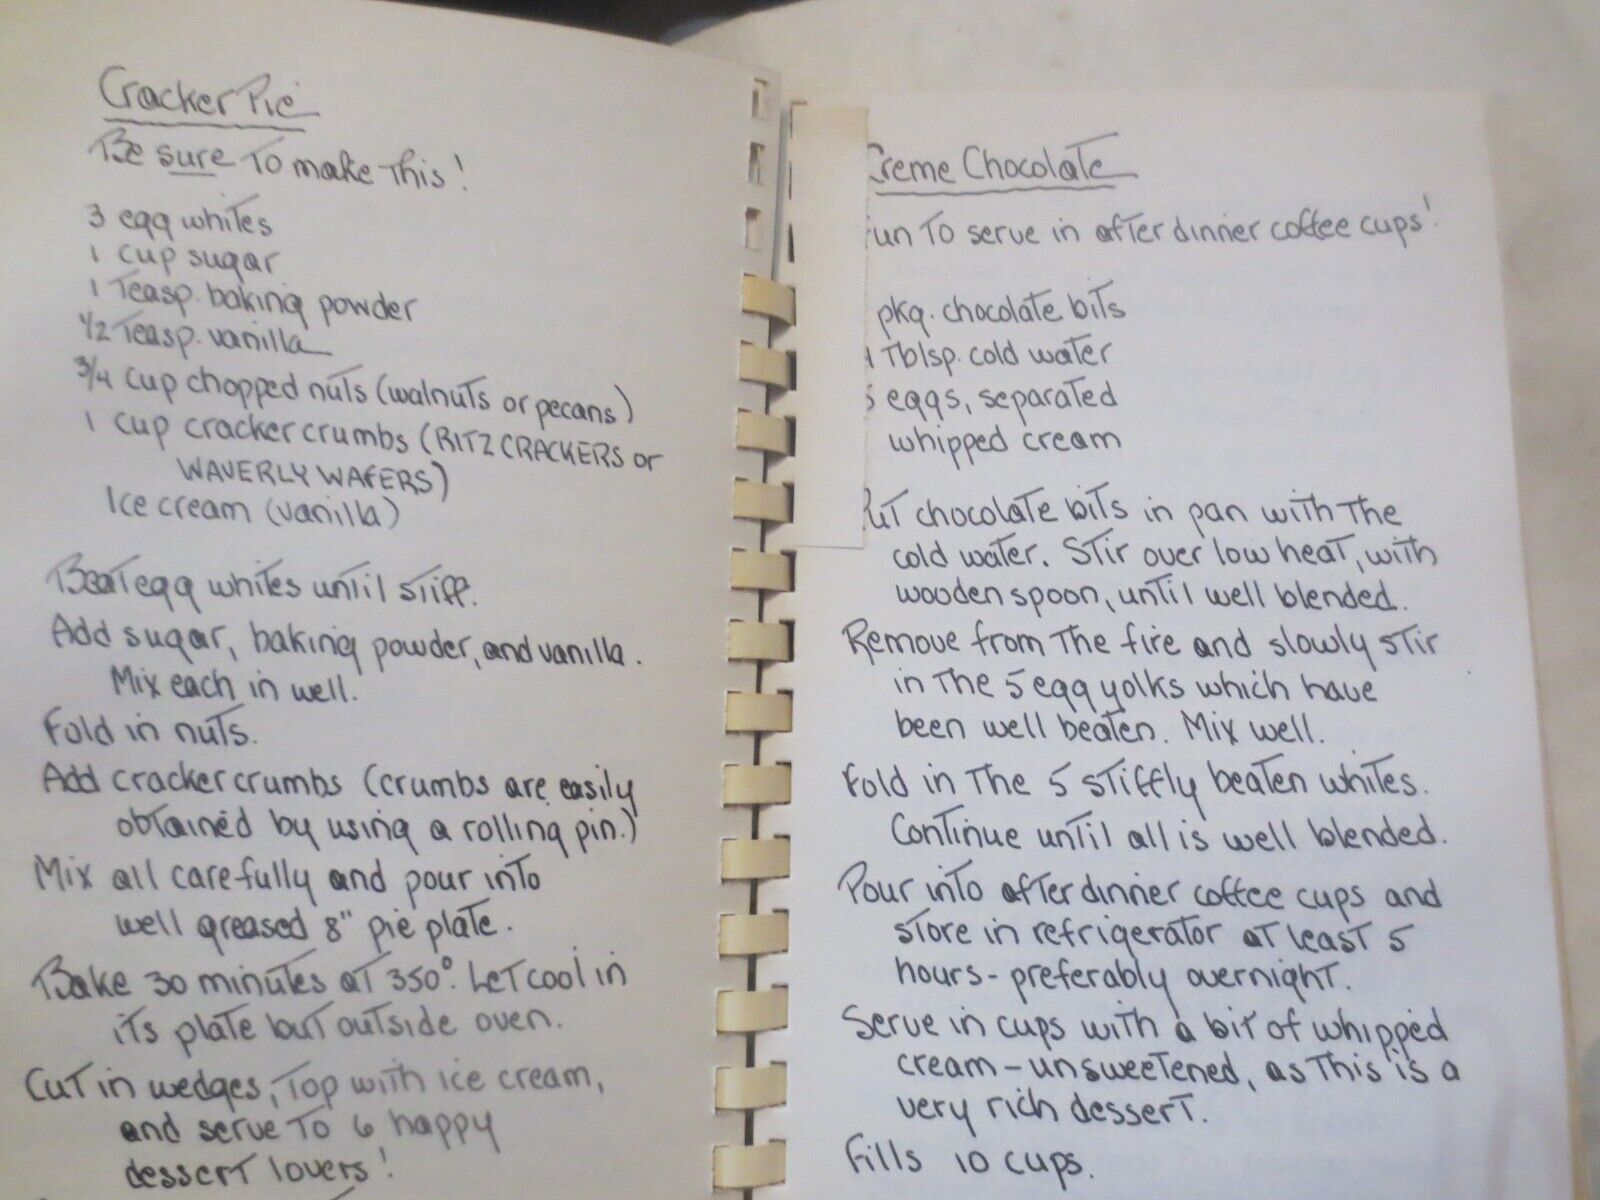 Cracker Pie
Be sure to make this!
3 egg whites
1 cup sugar
1 Teasp. baking powder
1/2 Teasp. vanilla
3/4 cup chopped nuts (walnuts or pecans)
1 cup cracker crumbs (RITZ CRACKERS or
WAVERLY WAFERS)
Ice cream (vanilla)
Beat egg whites until stiff.
Add sugar, baking powder, and vanilla.
Mix each in well.
Fold in nuts.
Add cracker crumbs (crumbs are easily
obtained by using a rolling pin.)
Mix all carefully and pour into
well greased 8" pie plate.
Bake 30 minutes at 350°. Let cool in
its plate but outside oven.
Cut in wedges, top with ice cream,
and serve to 6 happy
dessert lovers!
Creme Chocolate
Fun to serve in after dinner coffee cups!
pkg. chocolate bits
Tblsp. cold water
5 eggs, separated
whipped cream
Put chocolate bits in pan with the
cold water. Stir over low heat, with
wooden spoon, until well blended.
Remove from the fire and slowly stir
in the 5 egg yolks which have
been well beaten. Mix well.
Fold in the 5 stiffly beaten whites.
Continue until all is well blended.
Pour into after dinner coffee cups and
store in refrigerator at least 5
hours - preferably overnight.
Serve in cups with a bit of whipped
cream - unsweetened, as this is a
very rich dessert.
Fills 10 cups.